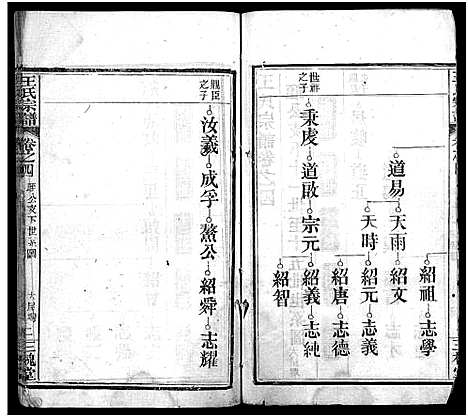 世祥之子
秉虔 道啟 宗元 紹義 志純
紹智
道易 天雨 紹文
天時 紹元 志義
紹唐 志德
紹祖 志學
臣之子
汝羲 成孚 鰲公 紹舜 志耀
王氏宗譜 卷之四
公支下世系圖
二 三槐堂